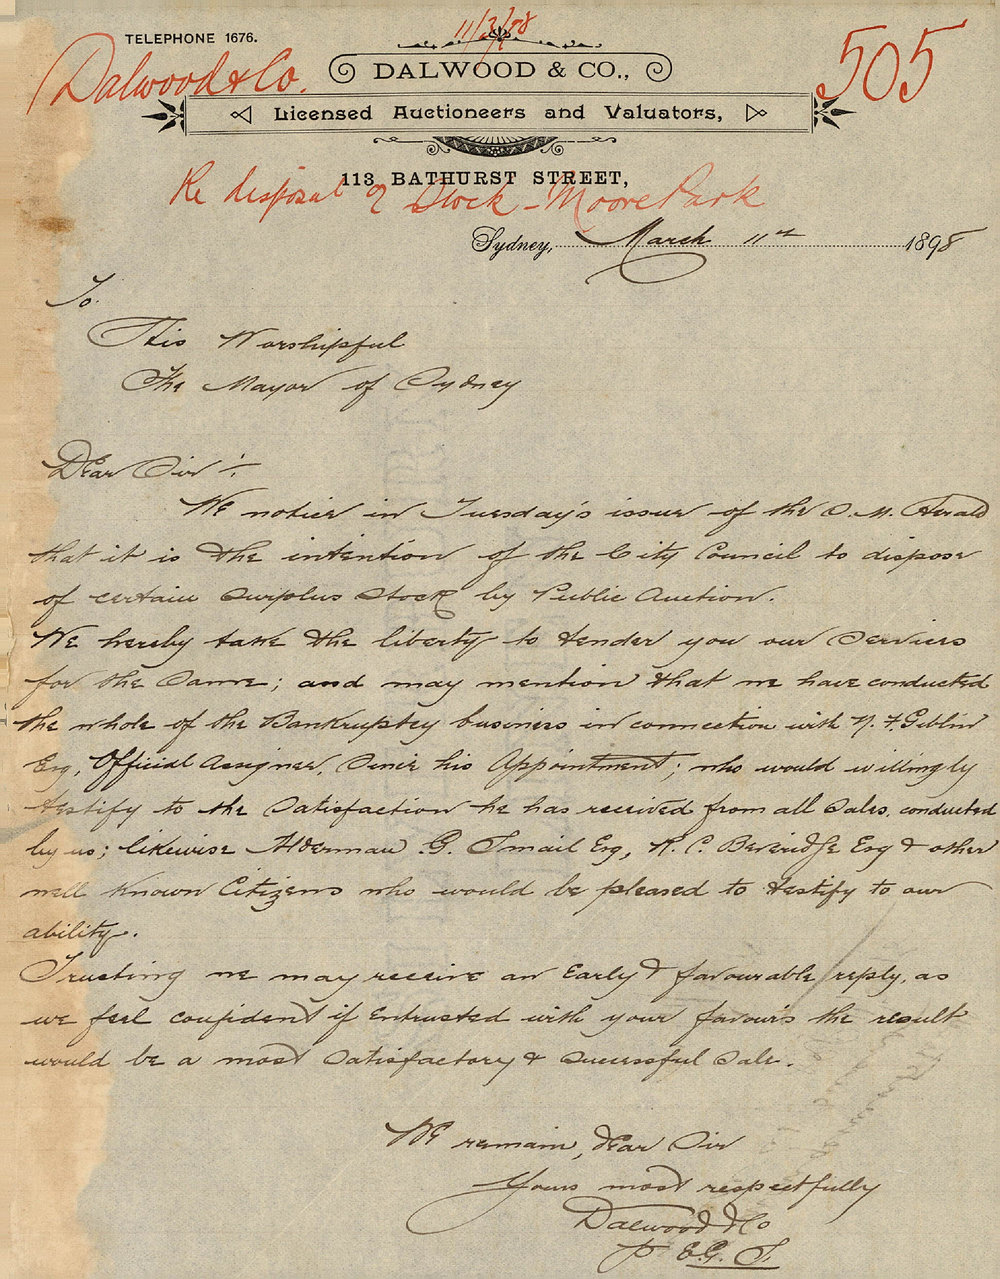 11/3/98
TELEPHONE 1676.
Dalwood & Co.
DALWOOD & CO.,
505
Licensed Auctioneers and Valuators,
113 BATHURST STREET,
Re disposal of Stock - Moore Park
Sydney, March 11th 1898
To
His Worshipful
The Mayor of Sydney
Dear Sir:
We notice in Tuesday's issue of the S. M. Herald
that it is the intention of the City Council to dispose
of certain Surplus Stock by Public Auction.
We hereby take the liberty to tender you our Services
for the Same; and may mention that we have conducted
the whole of the Bankruptcy business in connection with N. F. Giblin
Esq, Official Assignee, Since his Appointment; who would willingly
testify to the Satisfaction he has received from all Sales, conducted
by us; likewise Alderman G. Smail Esq, R. C. Beveridge Esq & other
well known Citizens who would be pleased to testify to our
ability.
Trusting we may receive an Early & favourable reply, as
we feel confident if Entrusted with your favours the result
would be a most Satisfactory & Successful Sale.
We remain, dear Sir
Yours most respectfully
Dalwood & Co
p E.G. S.